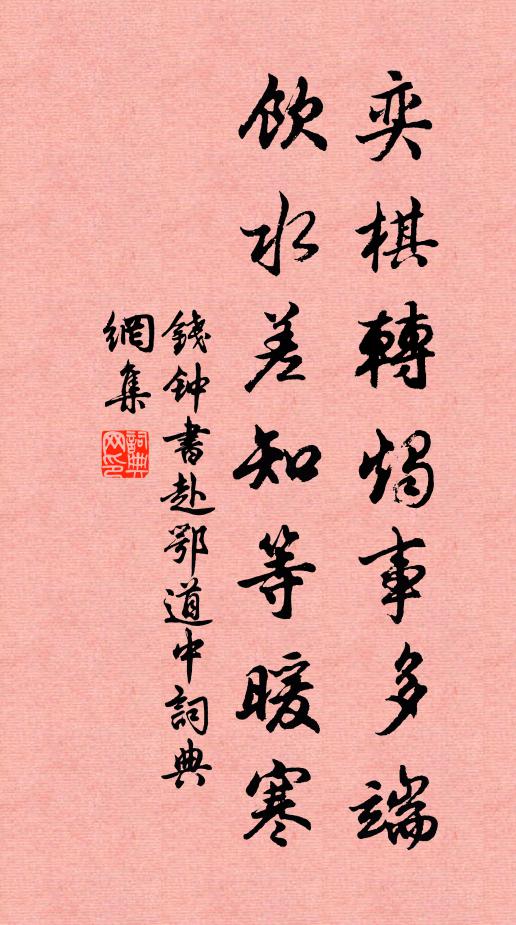 奕棋轉燭事多端
飲水差知等暖寒
錢钟書赴鄂道中詞典
網集
詞典
网印